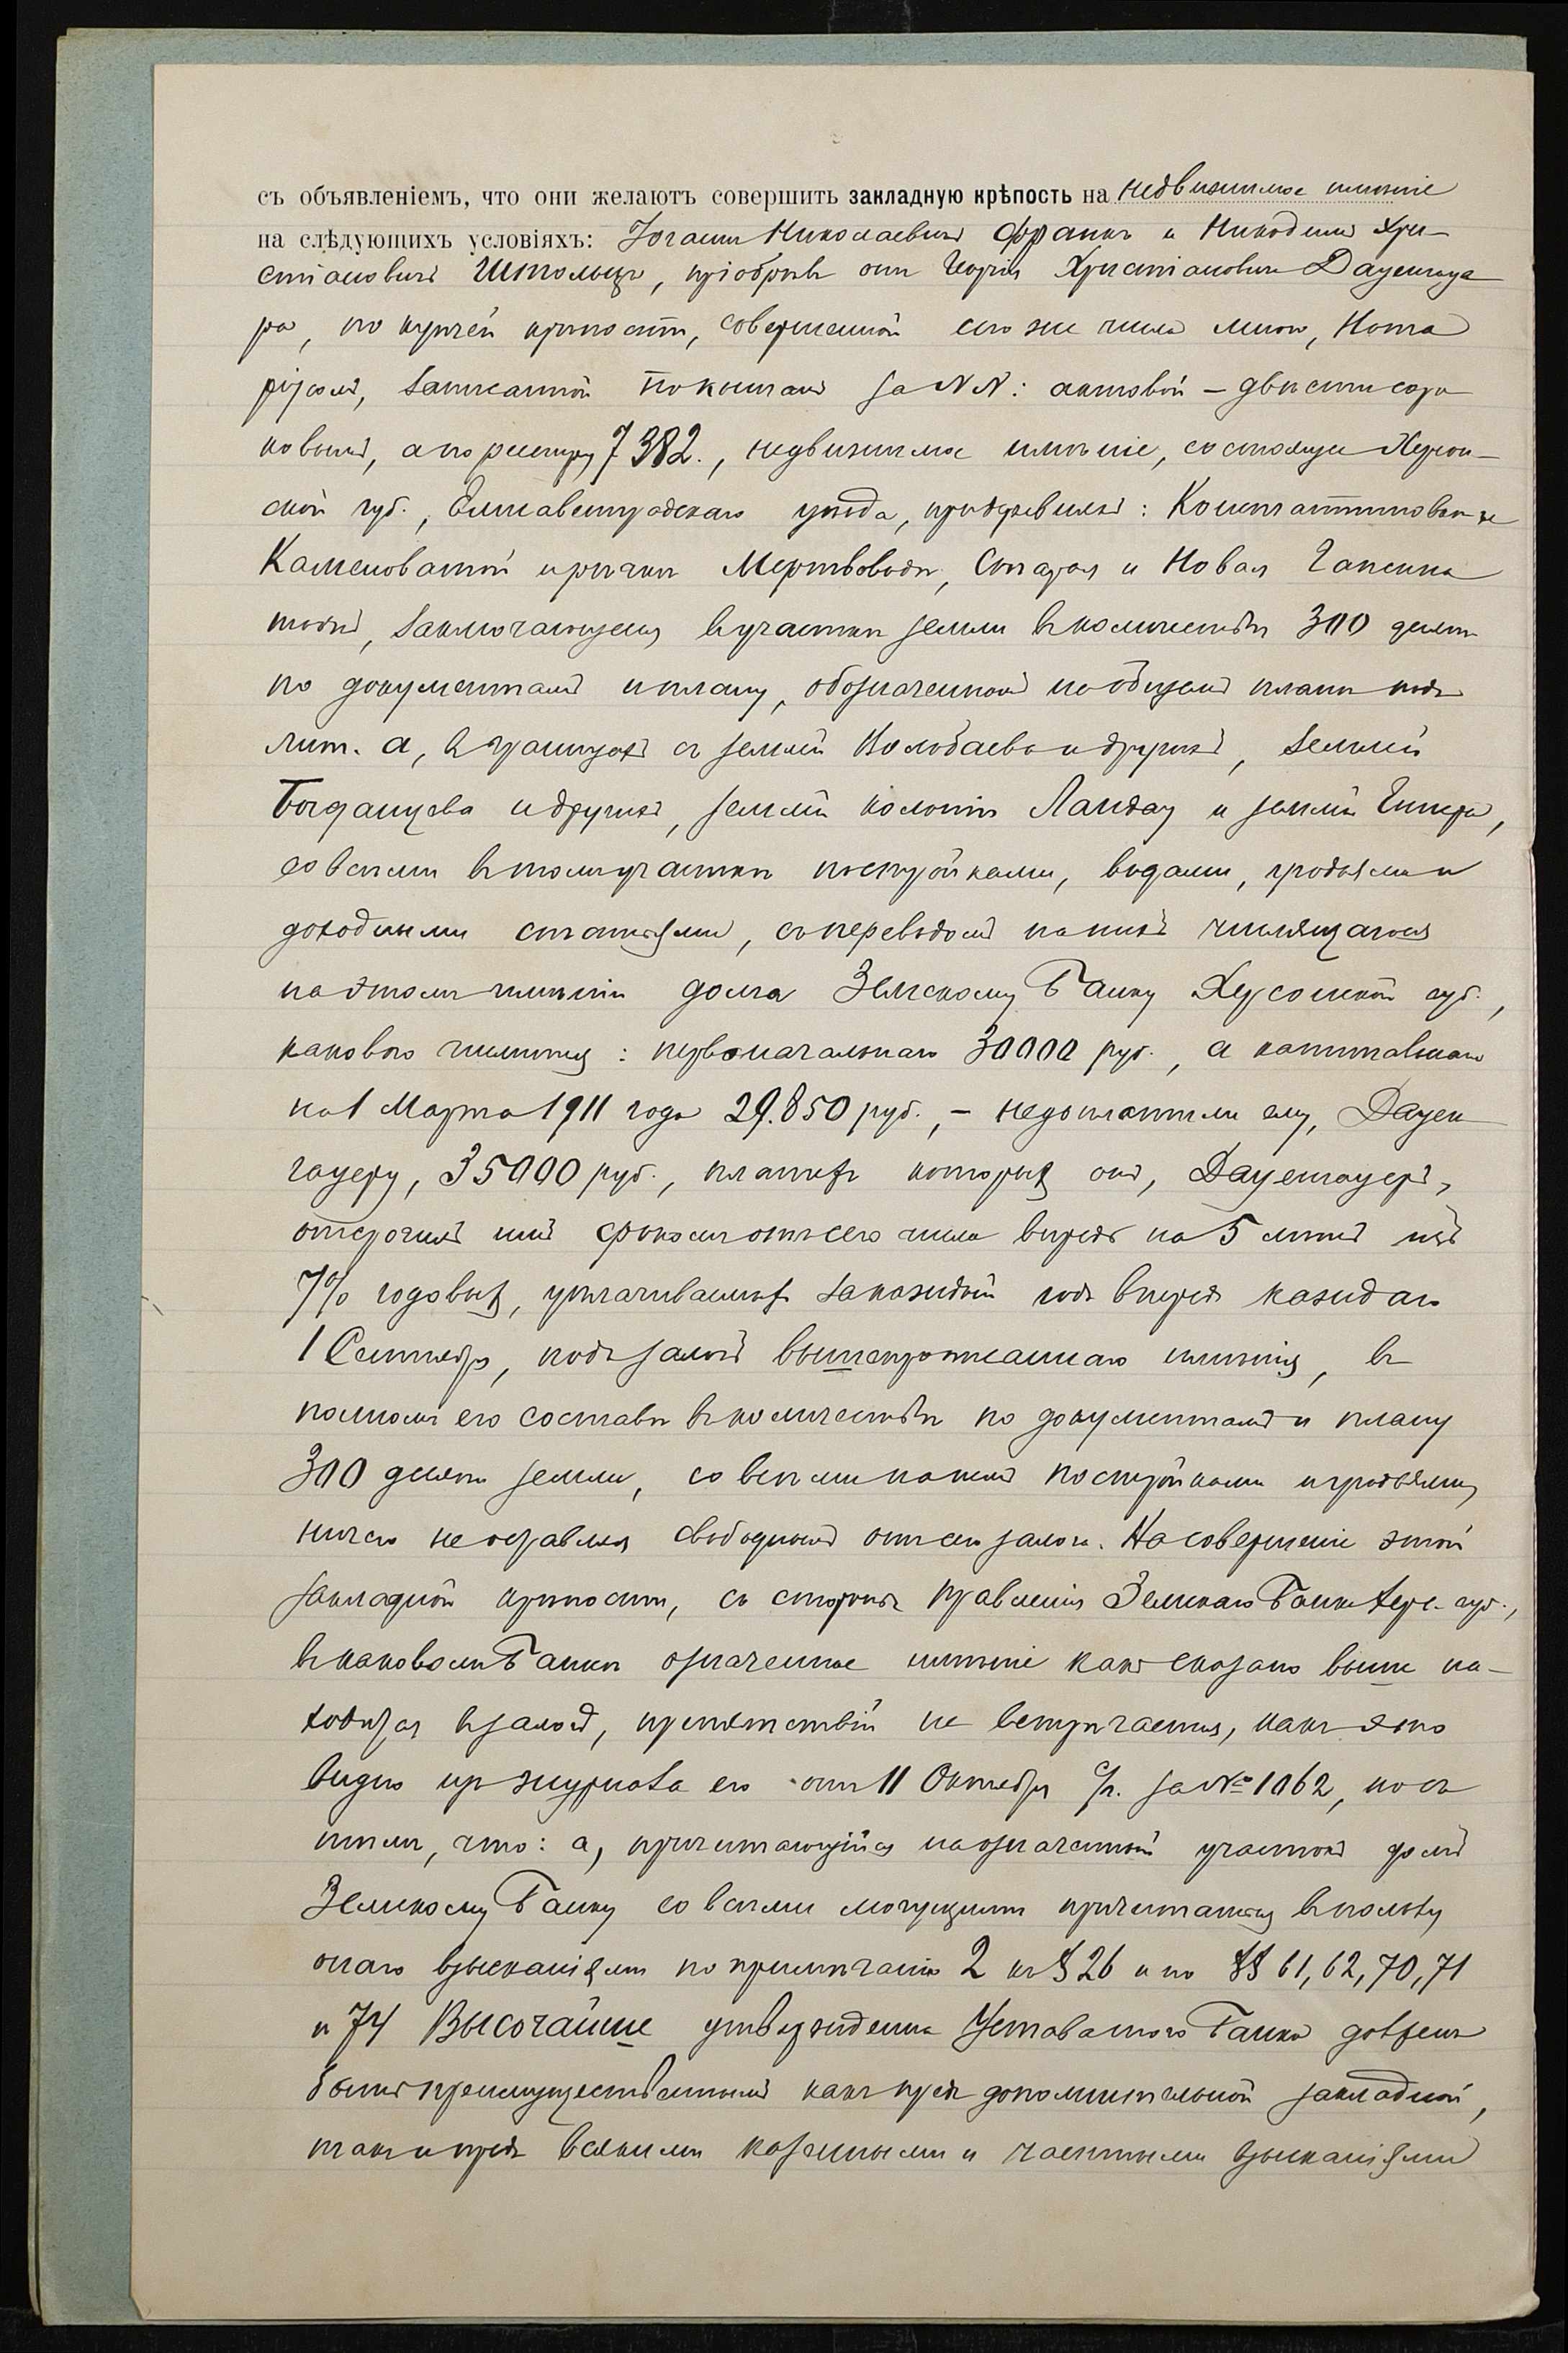 съ объявленіемъ, что они желаютъ совершить закладную крѣпость на недвижимое имѣніе
на слѣдующихъ условіяхъ: Іоганъ Николаевичъ Франкъ и Никодимъ Хри-
стіановичъ Штольцъ, пріобрѣвъ отъ Георгія Христіановича Дауенгауе
ра, по купчей крѣпости, совершенной сего же числа мною, Нота
ріусомъ, записанной по книгамъ за NN: актовой – двѣсти соро
ковымъ, а по реестру 7382., недвижимое имѣніе, состоящее Херсон-
ской губ., Елисаветградскаго уѣзда, при деревняхъ: Константиновкѣ
Каменоватой и рѣчкѣ Мертвоводѣ, Старая и Новая
тожъ, заключающееся въ участкѣ земли въ количествѣ 300 десят.
по документамъ и плану, обозначенномъ на общемъ планѣ подъ
лит. а, въ границахъ съ землей Колобаева и другихъ, землей
Богданцева и другихъ, землей колоніи Ландау и землей
со всѣми въ томъ участкѣ постройками, водами, угодьями и
доходными статьями, съ переводомъ на нихъ числящагося
на этомъ имѣніи долга Земскому Банку Херсонской губ.,
каковаго числится: первоначальнаго 30000 руб., а капитальнаго
на 1 Марта 1911 года 29.850 руб., – недоплатили ему, Дауен
гауеру, 35000 руб., платежъ которыхъ онъ, Дауенгауеръ,
отсрочилъ имъ срокомъ отъ сего числа впредь на 5 лѣтъ изъ
7% годовыхъ, уплачиваемыхъ за каждый годъ впередъ каждаго
1 Сентября, подъ залогъ вышепрописаннаго имѣнія, въ
полномъ его составѣ въ количествѣ по документамъ и плану
300 десят. земли, со всѣми на ней постройками и угодьями,
ничего не оставляя свободнымъ отъ сего залога. На совершеніе этой
закладной крѣпости, со стороны Правленія Земскаго Банка Херс. губ.,
въ каковомъ Банкѣ означенное имѣніе какъ сказано выше на-
ходится въ залогѣ, препятствій не встрѣчается, какъ это
видно изъ журнала его отъ 11 Октября с/г. за № 1062, но съ
тѣмъ, что: а, причитающійся на означенный участокъ долгъ
Земскому Банку со всѣми могущими причитаться въ пользу
онаго взысканіями по примѣчанію 2 къ § 26 и по §§ 61, 62, 70, 71
и 74 Высочайше утвержденна Устава того Банка долженъ
быть преимущественнымъ какъ предъ дополнительной закладной,
такъ и предъ всякими казенными и частными взысканіями